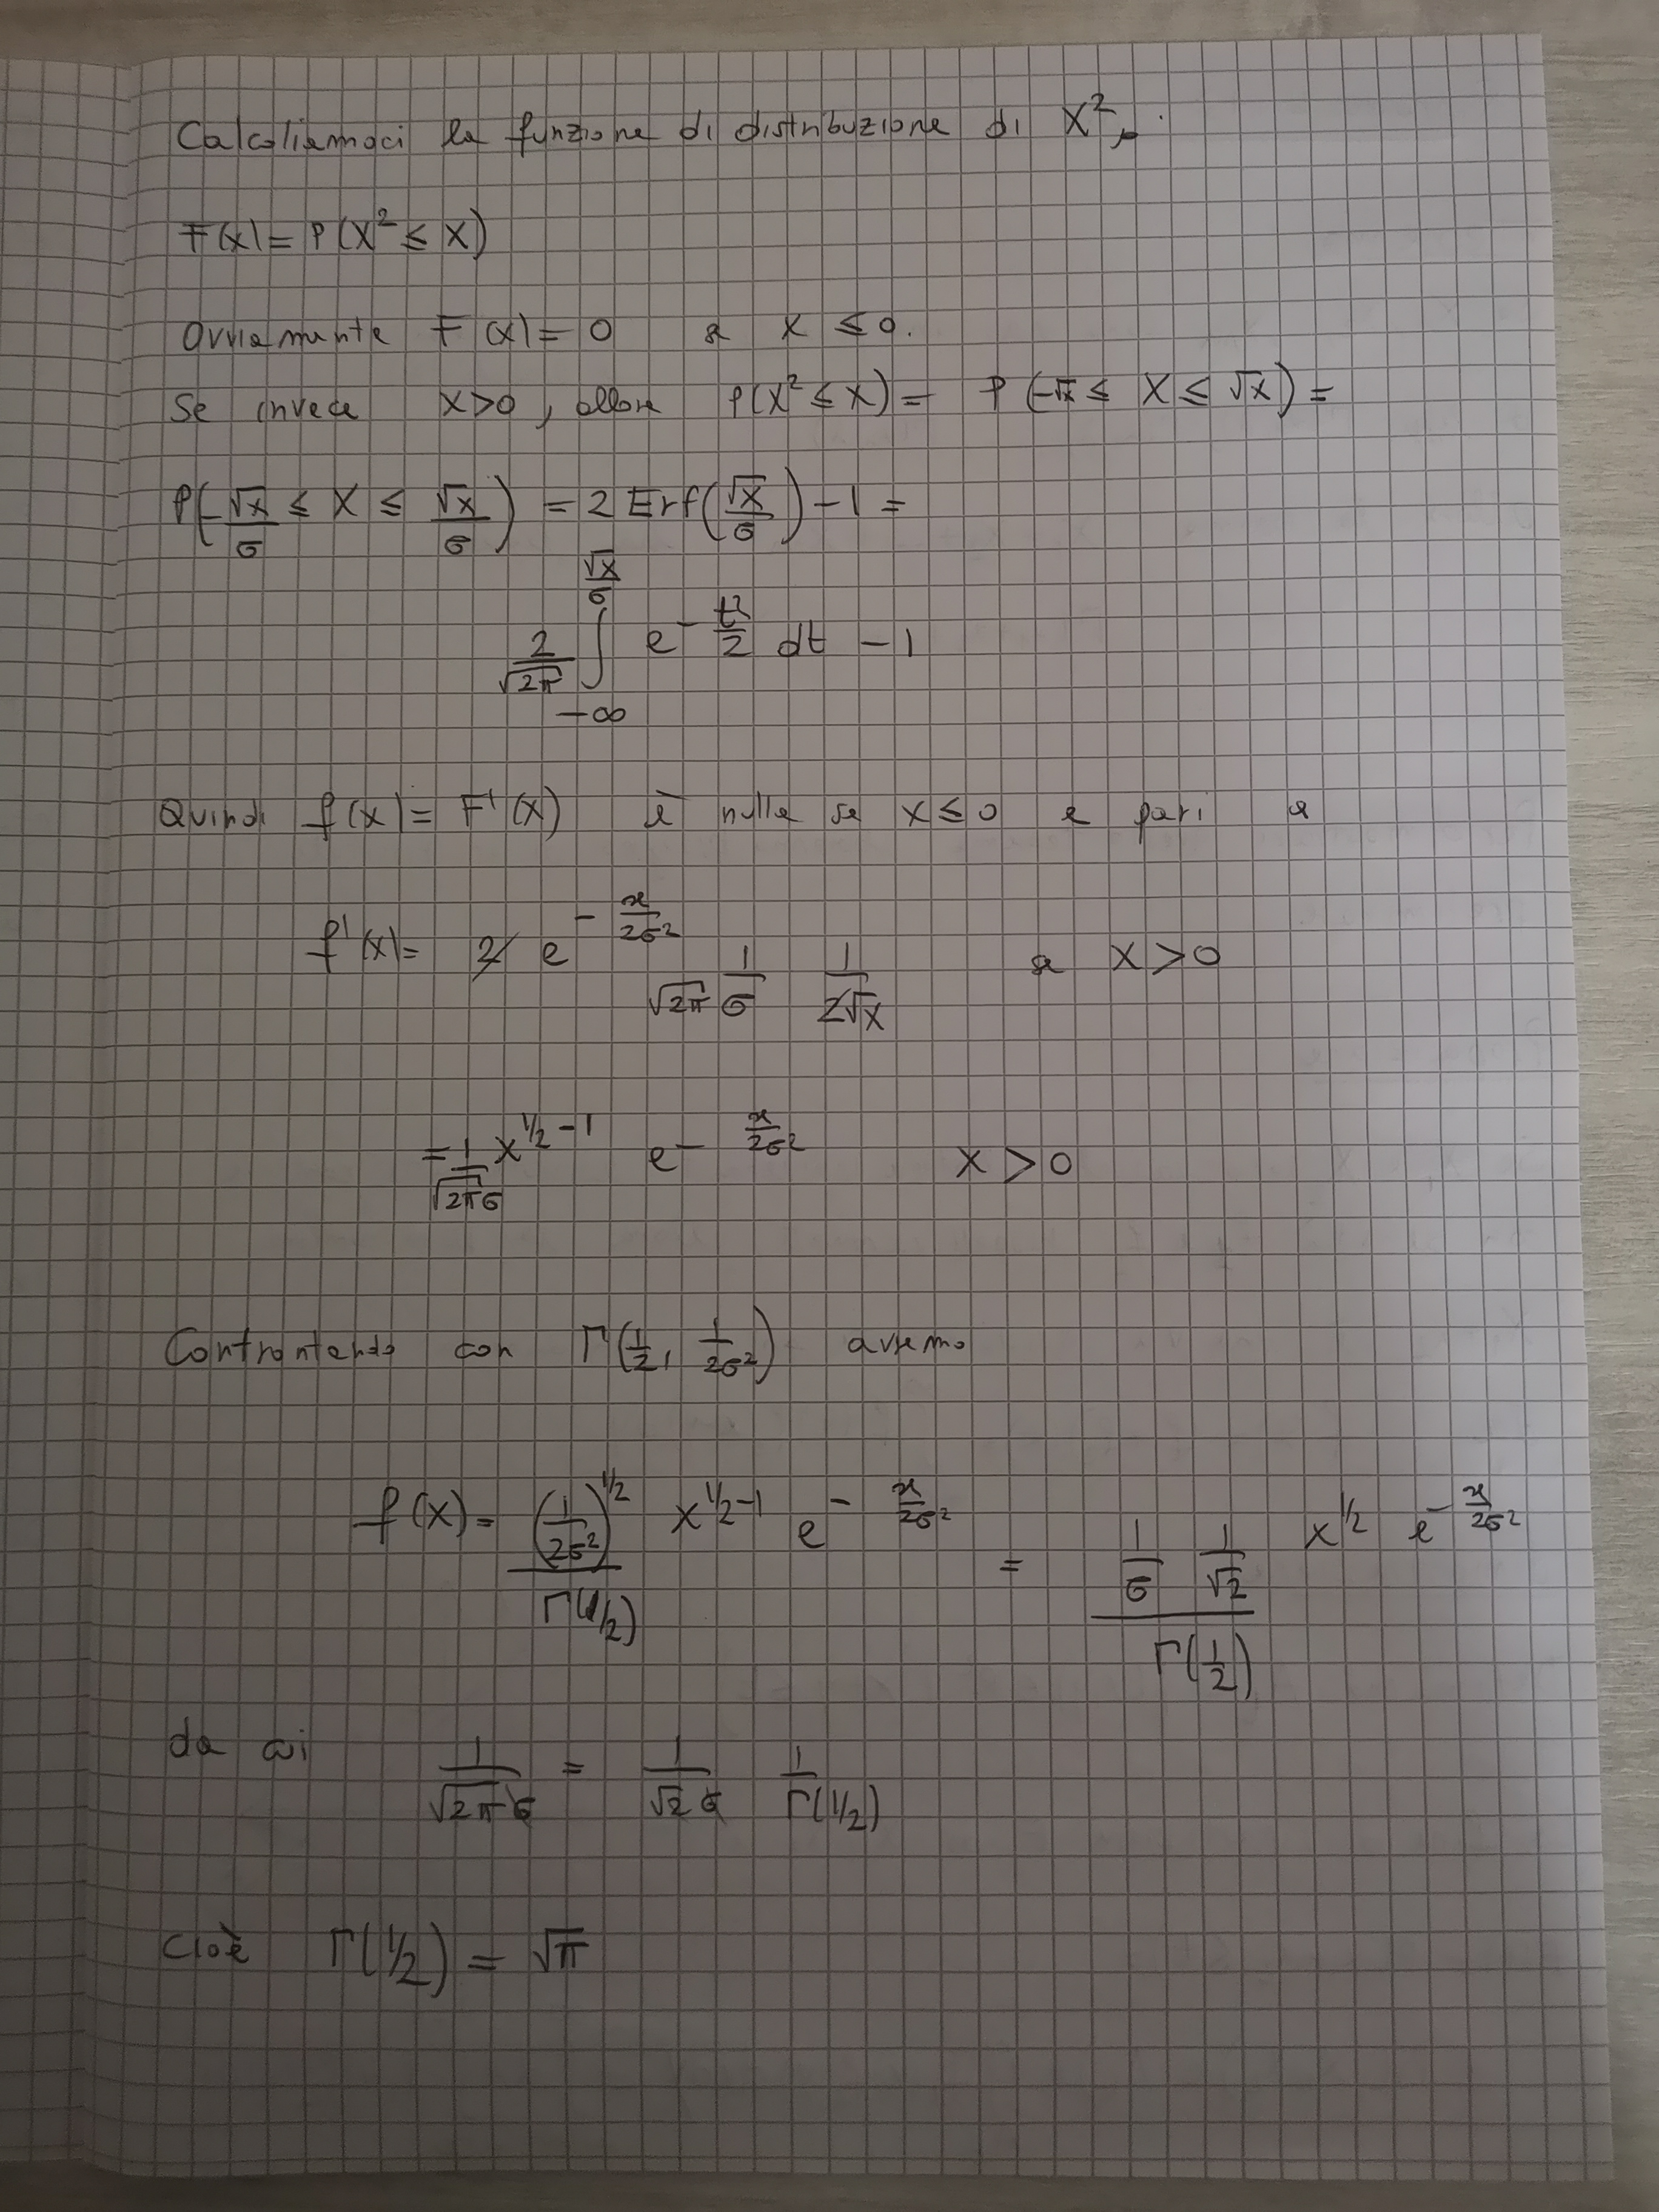 Calcoliamoci la funzione di distribuzione di X².
F(x) = P(X² ≤ x)
Ovviamente F(x) = 0 se x ≤ 0.
Se invece x>0, allora P(X² ≤ x) = P(-√x ≤ X ≤ √x) =
P(-√x/σ ≤ X ≤ √x/σ) = 2 Erf(√x/σ) - 1 =
2/√2π ∫_{-∞}^{√x/σ} e^{-t²/2} dt - 1
Quindi f(x) = F'(x) è nulla se x ≤ 0 e pari a
f'(x) = 2 e^{-x/2σ²} 1/√2π σ 1/2√x se x > 0
= 1/√2π σ x^{1/2 - 1} e^{-x/2σ²} x > 0
Confrontando con Γ(1/2, 1/2σ²) avremo
f(x) = (1/2σ²)^{1/2} / Γ(1/2) x^{1/2-1} e^{-x/2σ²} = 1/σ 1/√2 / Γ(1/2) x^{1/2} e^{-x/2σ²}
da cui 1/√2π σ = 1/√2 σ 1/Γ(1/2)
Cioè Γ(1/2) = √π